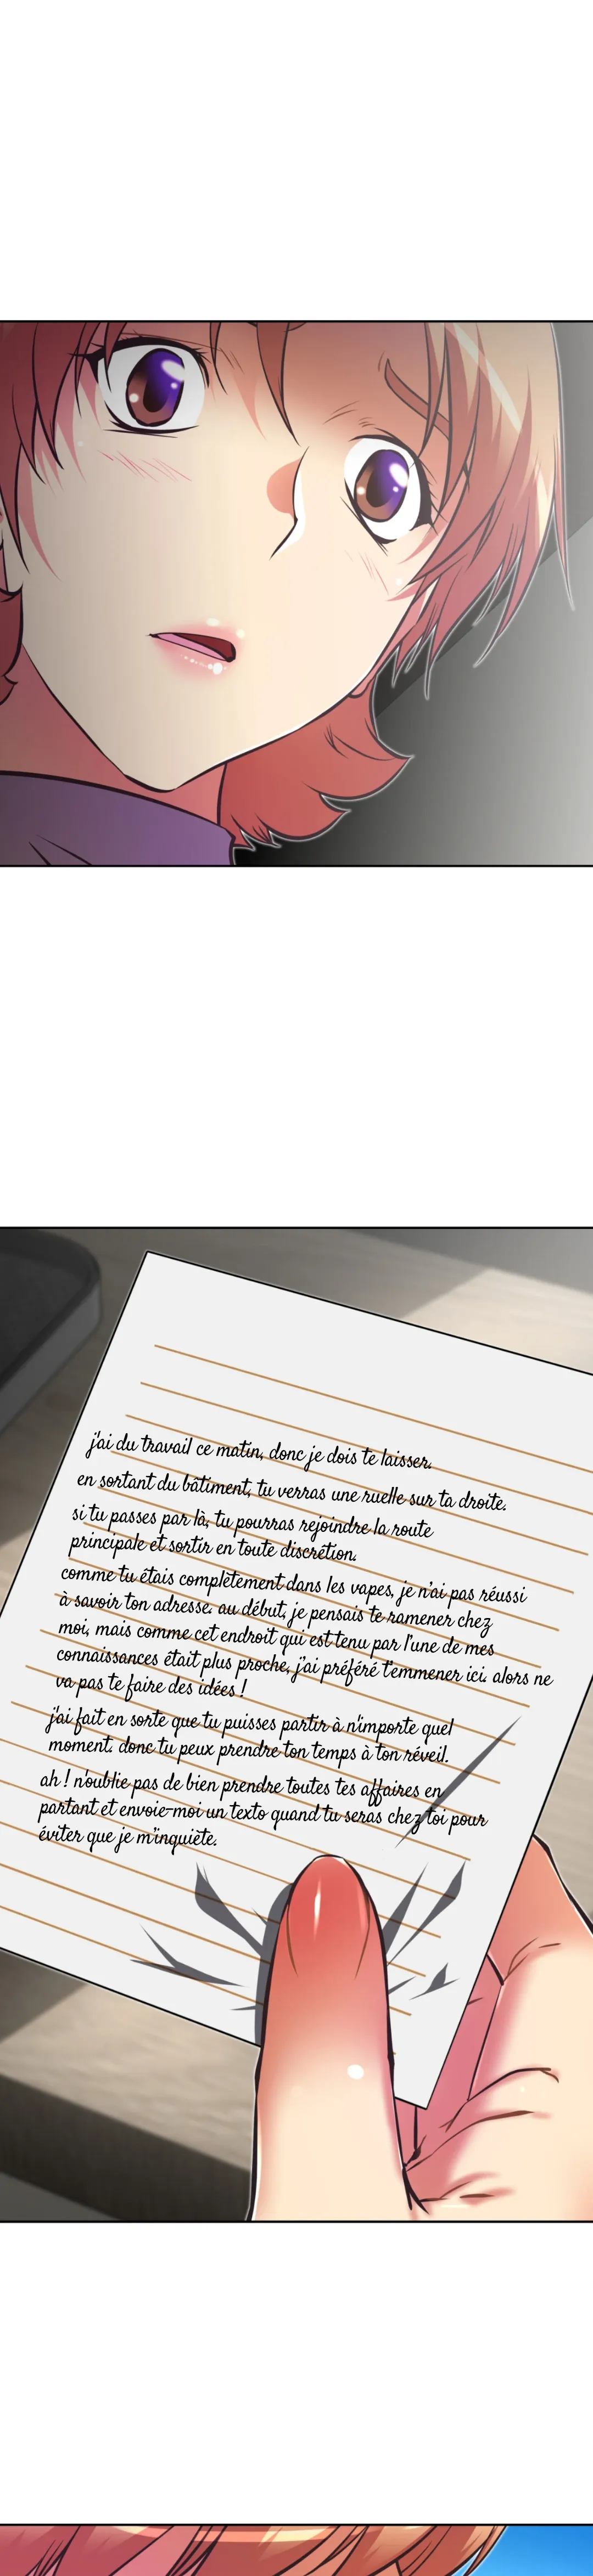 j'ai du travail ce matin, donc je dois te laisser.
en sortant du bâtiment, tu verras une ruelle sur ta droite.
si tu passes par là, tu pourras rejoindre la route
principale et sortir en toute discrétion.
comme tu étais complètement dans les vapes, je n'ai pas réussi
à savoir ton adresse. au début, je pensais te ramener chez
moi, mais comme cet endroit qui est tenu par l'une de mes
connaissances était plus proche, j'ai préféré t'emmener ici. alors ne
va pas te faire des idées !
j'ai fait en sorte que tu puisses partir à n'importe quel
moment. donc tu peux prendre ton temps à ton réveil.
ah ! n'oublie pas de bien prendre toutes tes affaires en
partant et envoie-moi un texto quand tu seras chez toi pour
éviter que je m'inquiète.